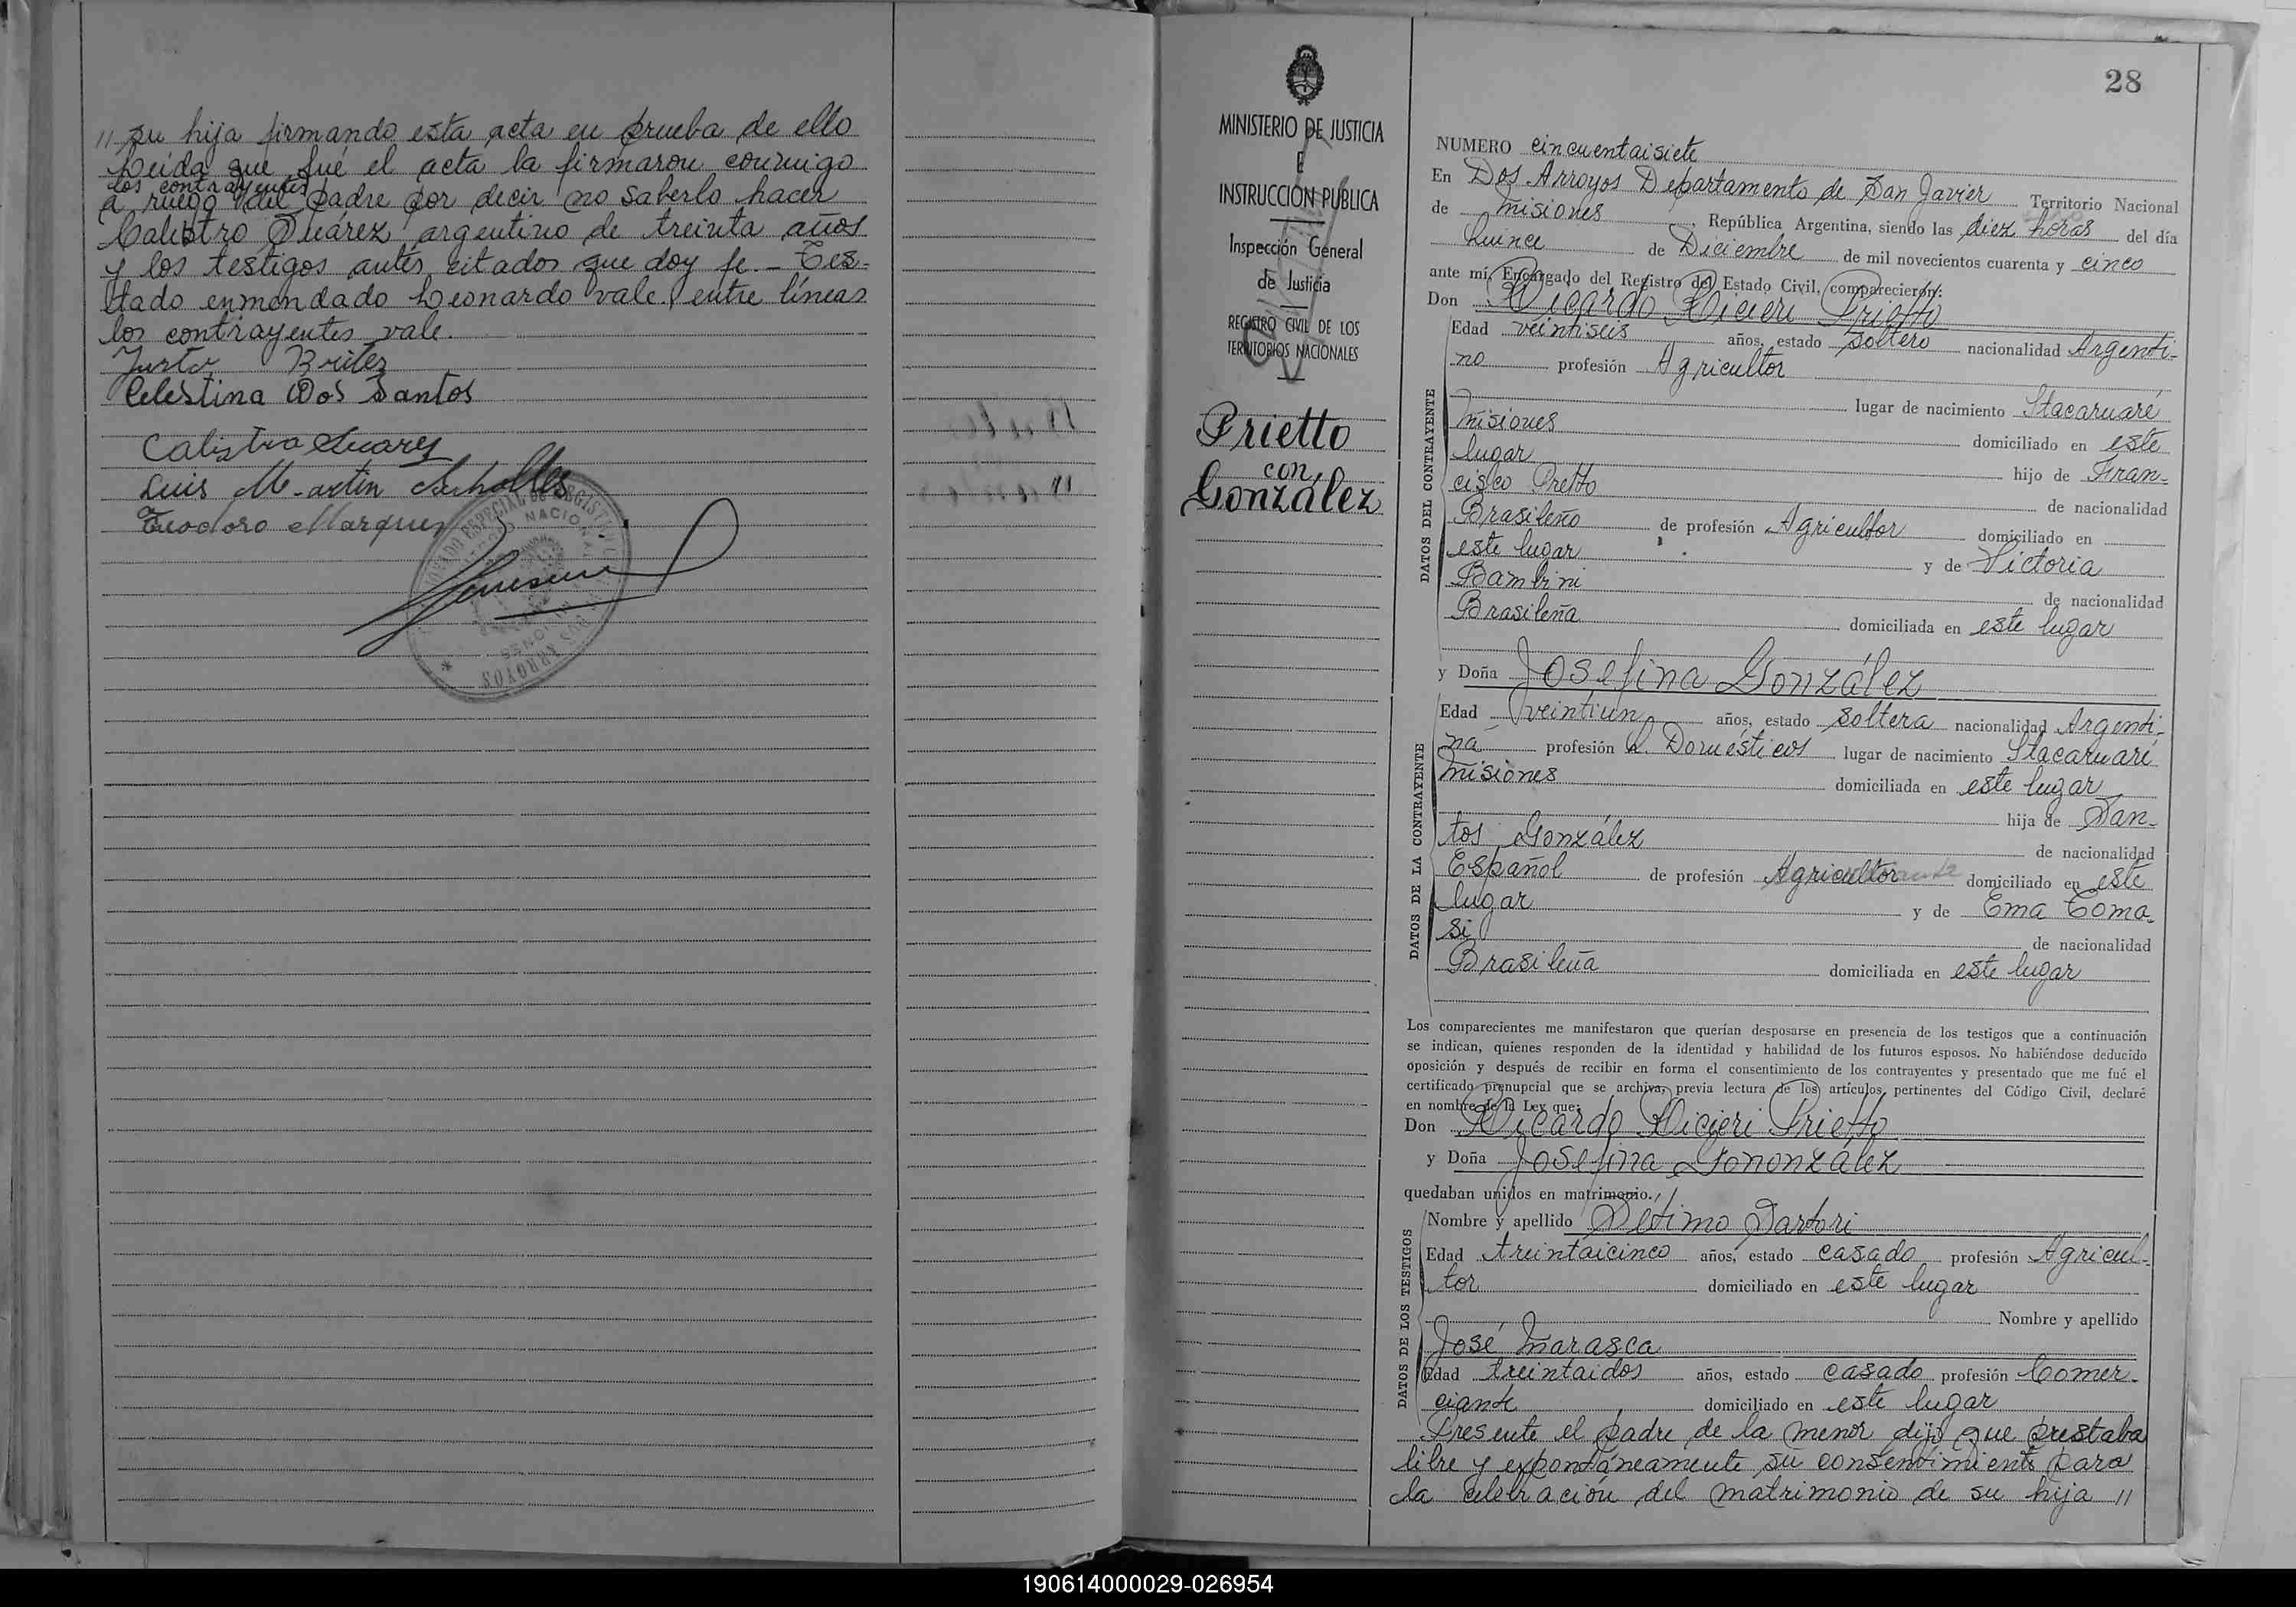 // su hija firmando esta acta en prueba de ello
Leida que fué el acta la firmaron conmigo
los contrayentes
a ruego del padre por decir no saberlo hacer
Calistro Suárez, argentino de treinta años
y los testigos antes citados que doy fe.- Tes-
tado enmendado Leonardo vale. entre líneas
los contrayentes vale.
Justo Britez
Celestina Dos Santos
Calistro Suarez
Luis Martin
Teodoro Marques
28
MINISTERIO DE JUSTICIA
E
INSTRUCCION PUBLICA
Inspección General
de Justicia
REGISTRO CIVIL DE LOS
TERRITORIOS NACIONALES
Prietto
con
González
NUMERO cincuentaisiete
En Dos Arroyos Departamento de San Javier Territorio Nacional
de Misiones, República Argentina, siendo las diez horas del día
Quince de Diciembre de mil novecientos cuarenta y cinco
ante mí, Encargado del Registro del Estado Civil, comparecieron:
Don Ricardo Dicieri Prietto
DATOS DEL CONTRAYENTE
Edad veintiseis años, estado Soltero nacionalidad Argenti-
no profesión Agricultor
lugar de nacimiento Itacaruaré
Misiones domiciliado en este
lugar hijo de Fran-
cisco Pretto de nacionalidad
Brasileño de profesión Agricultor domiciliado en
este lugar y de Victoria
Bambini de nacionalidad
Brasileña domiciliada en este lugar
y Doña Josefina González
DATOS DE LA CONTRAYENTE
Edad veintiun años, estado Soltera nacionalidad Argenti-
na profesión Q. Domésticos lugar de nacimiento Itacaruaré
Misiones domiciliada en este lugar
hija de San-
tos González de nacionalidad
Español de profesión Agricultor domiciliado en este
lugar y de Ema Toma-
si de nacionalidad
Brasileña domiciliada en este lugar
Los comparecientes me manifestaron que querían desposarse en presencia de los testigos que a continuación
se indican, quienes responden de la identidad y habilidad de los futuros esposos. No habiéndose deducido
oposición y después de recibir en forma el consentimiento de los contrayentes y presentado que me fué el
certificado prenupcial que se archiva, previa lectura de los artículos pertinentes del Código Civil, declaré
en nombre de la Ley que:
Don Ricardo Dicieri Prietto
y Doña Josefina Gononzález
quedaban unidos en matrimonio.
DATOS DE LOS TESTIGOS
Nombre y apellido Setimo Sartori
Edad treintaicinco años, estado casado profesión Agricul-
tor domiciliado en este lugar
Nombre y apellido
José Marasca
Edad treintaidos años, estado casado profesión Comer-
ciante domiciliado en este lugar
Presente el padre de la menor dijo que prestaba
libre y espontáneamente su consentimiento para
la celebración del matrimonio de su hija //
190614000029-026954